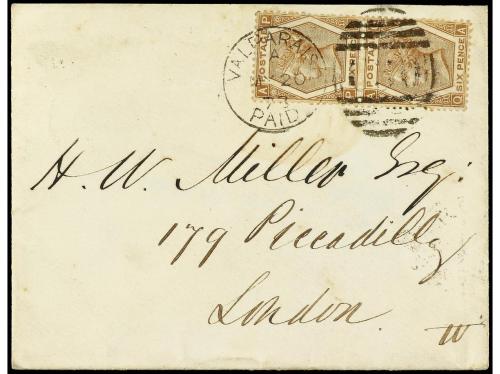 VALPARAISO
A
20
73
PAID
POSTAGE SIX PENCE
POSTAGE SIX PENCE
H. W. Miller Esq:
179 Piccadilly
London.
W